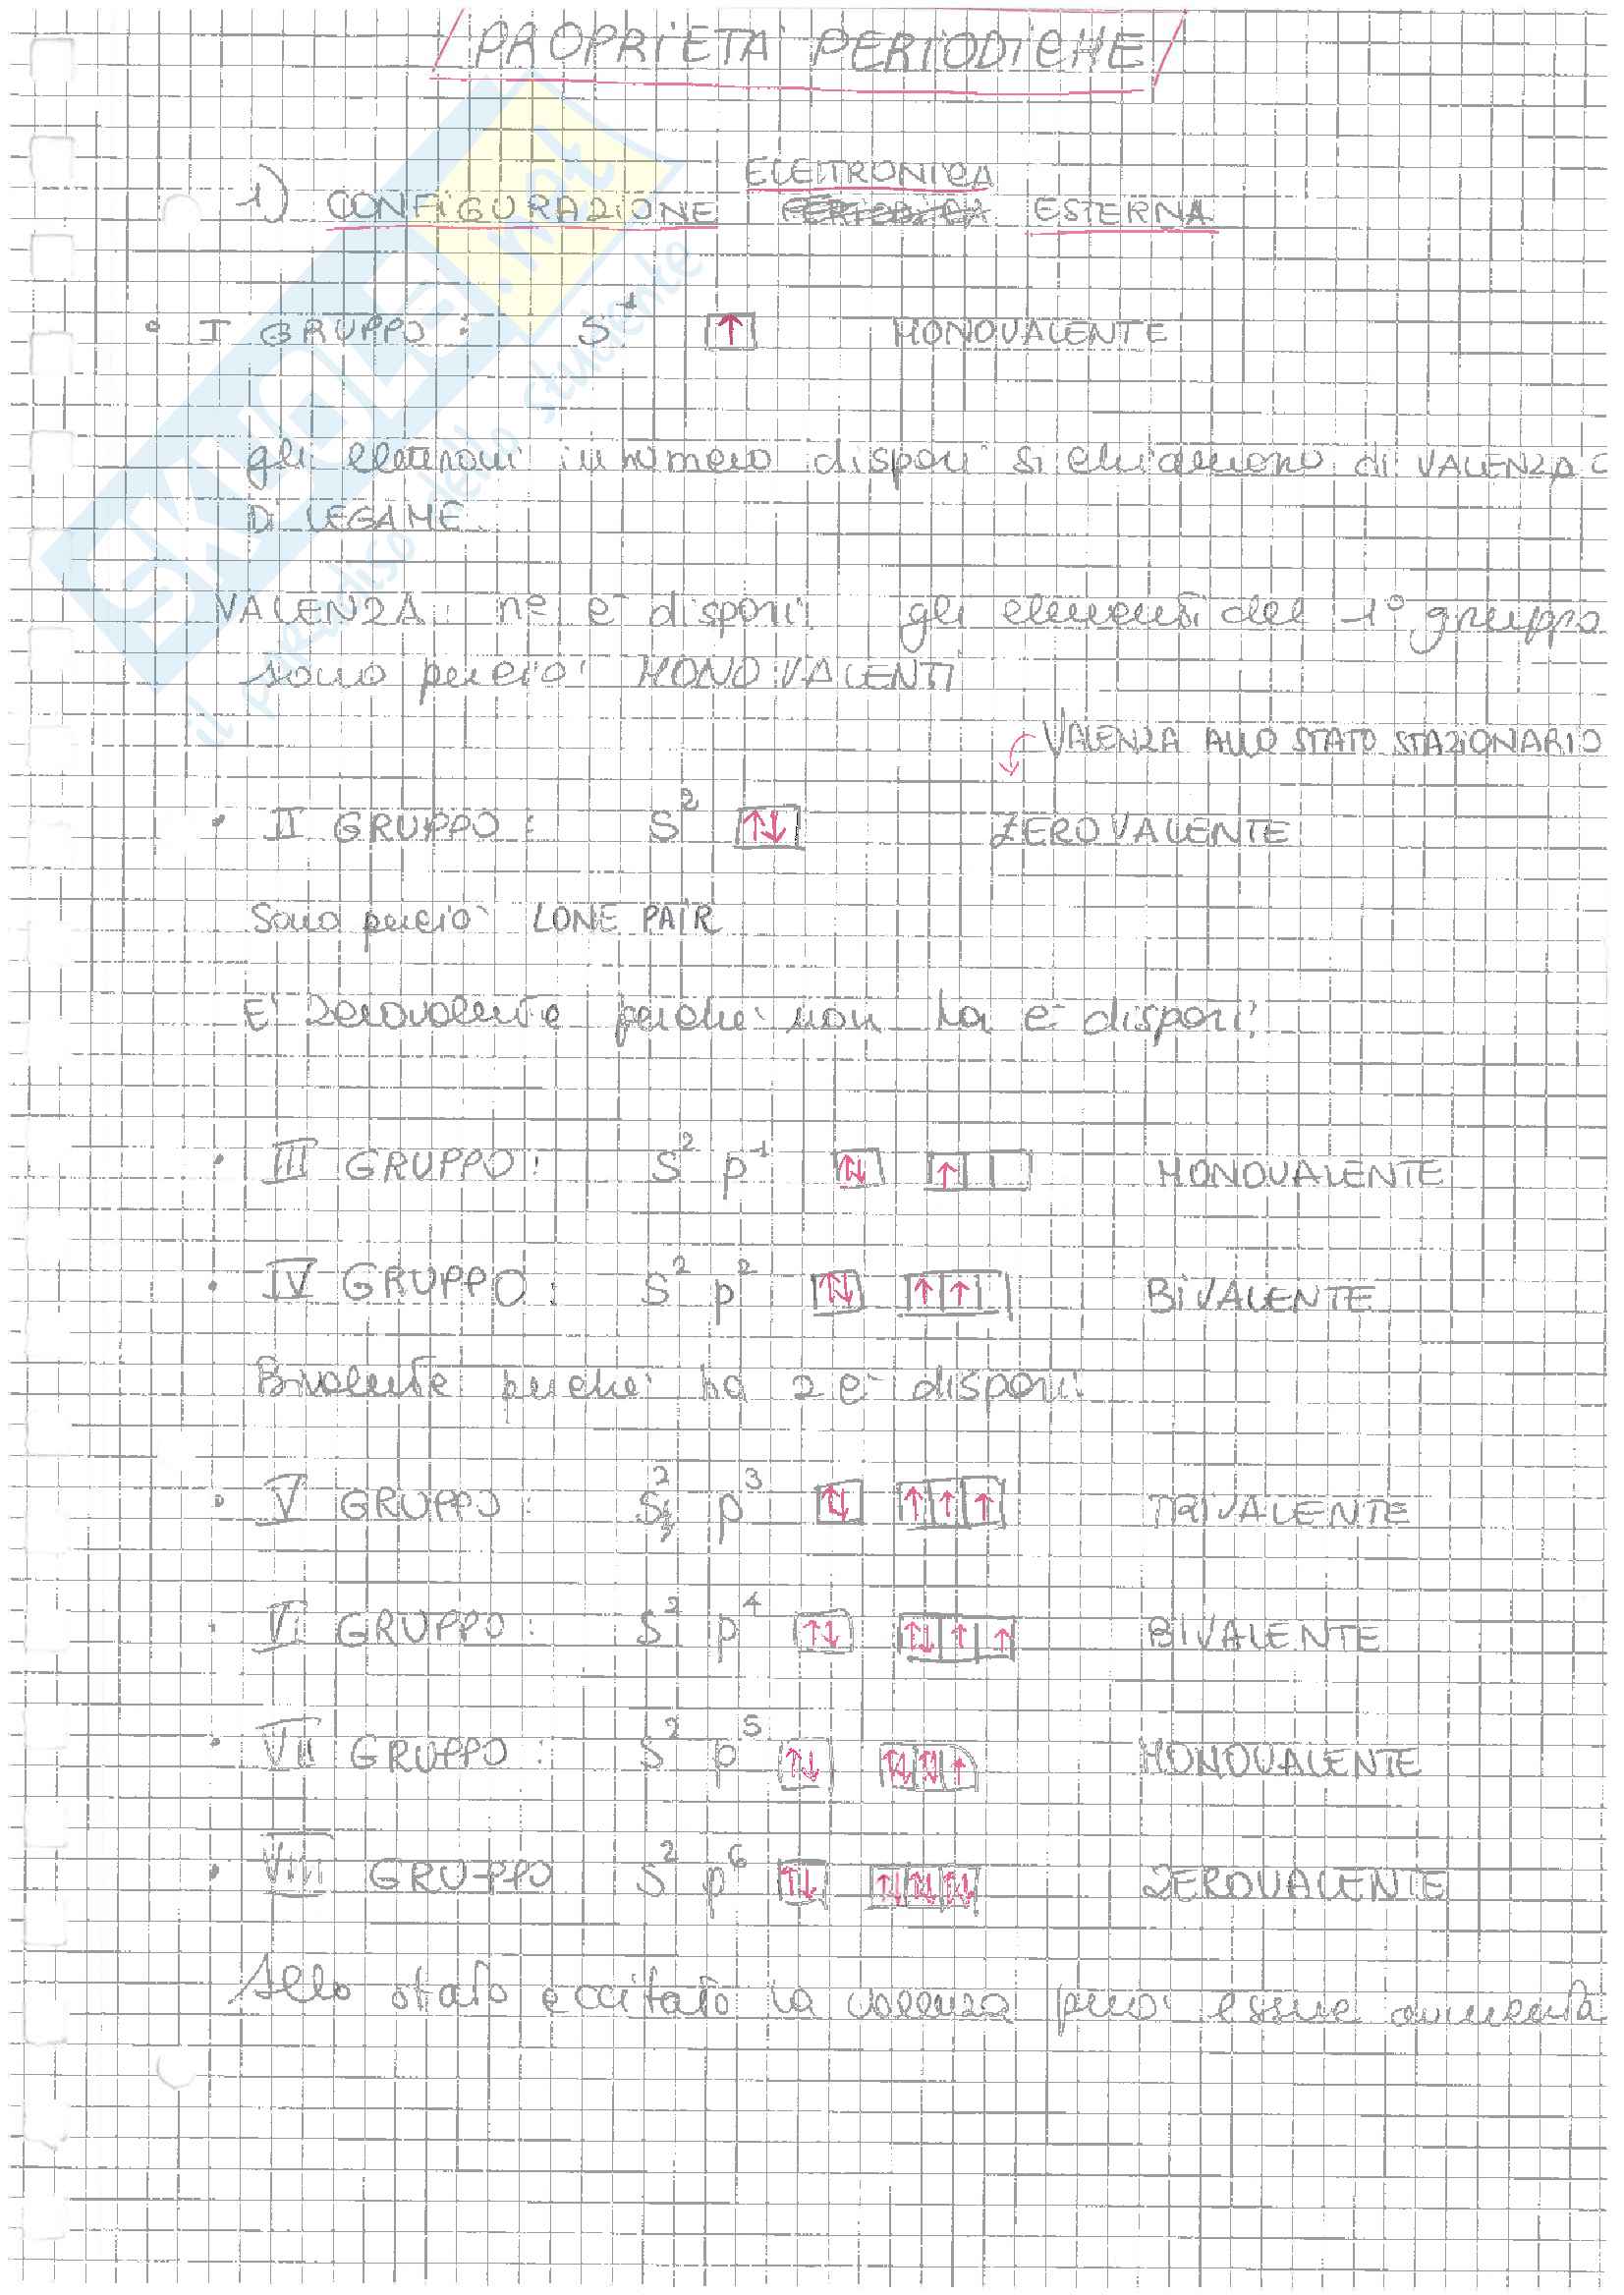 PROPRIETA' PERIODICHE
ELETTRONICA
1) CONFIGURAZIONE ESTERNA
• I GRUPPO: S¹ ↑ MONOVALENTE
gli elettroni in numero dispari si chiamano di VALENZA O
DI LEGAME.
VALENZA: n° e⁻ dispari gli elementi del 1° gruppo
sono perciò MONOVALENTI
VALENZA ALLO STATO STAZIONARIO
• II GRUPPO: S² ↑↓ ZEROVALENTE
Sono perciò LONE PAIR
E' zerovalente perché non ha e⁻ dispari.
• III GRUPPO: S² p¹ ↑↓ ↑ MONOVALENTE
• IV GRUPPO: S² p² ↑↓ ↑ ↑ BIVALENTE
Bivalente perché ha 2 e⁻ dispari
• V GRUPPO: S² p³ ↑↓ ↑ ↑ ↑ TRIVALENTE
• VI GRUPPO: S² p⁴ ↑↓ ↑↓ ↑ ↑ BIVALENTE
• VII GRUPPO: S² p⁵ ↑↓ ↑↓ ↑↓ ↑ MONOVALENTE
• VIII GRUPPO S² p⁶ ↑↓ ↑↓ ↑↓ ↑↓ ZEROVALENTE
Allo stato eccitato la valenza può essere aumenta
SKUOLA.net
il paradiso dello studente